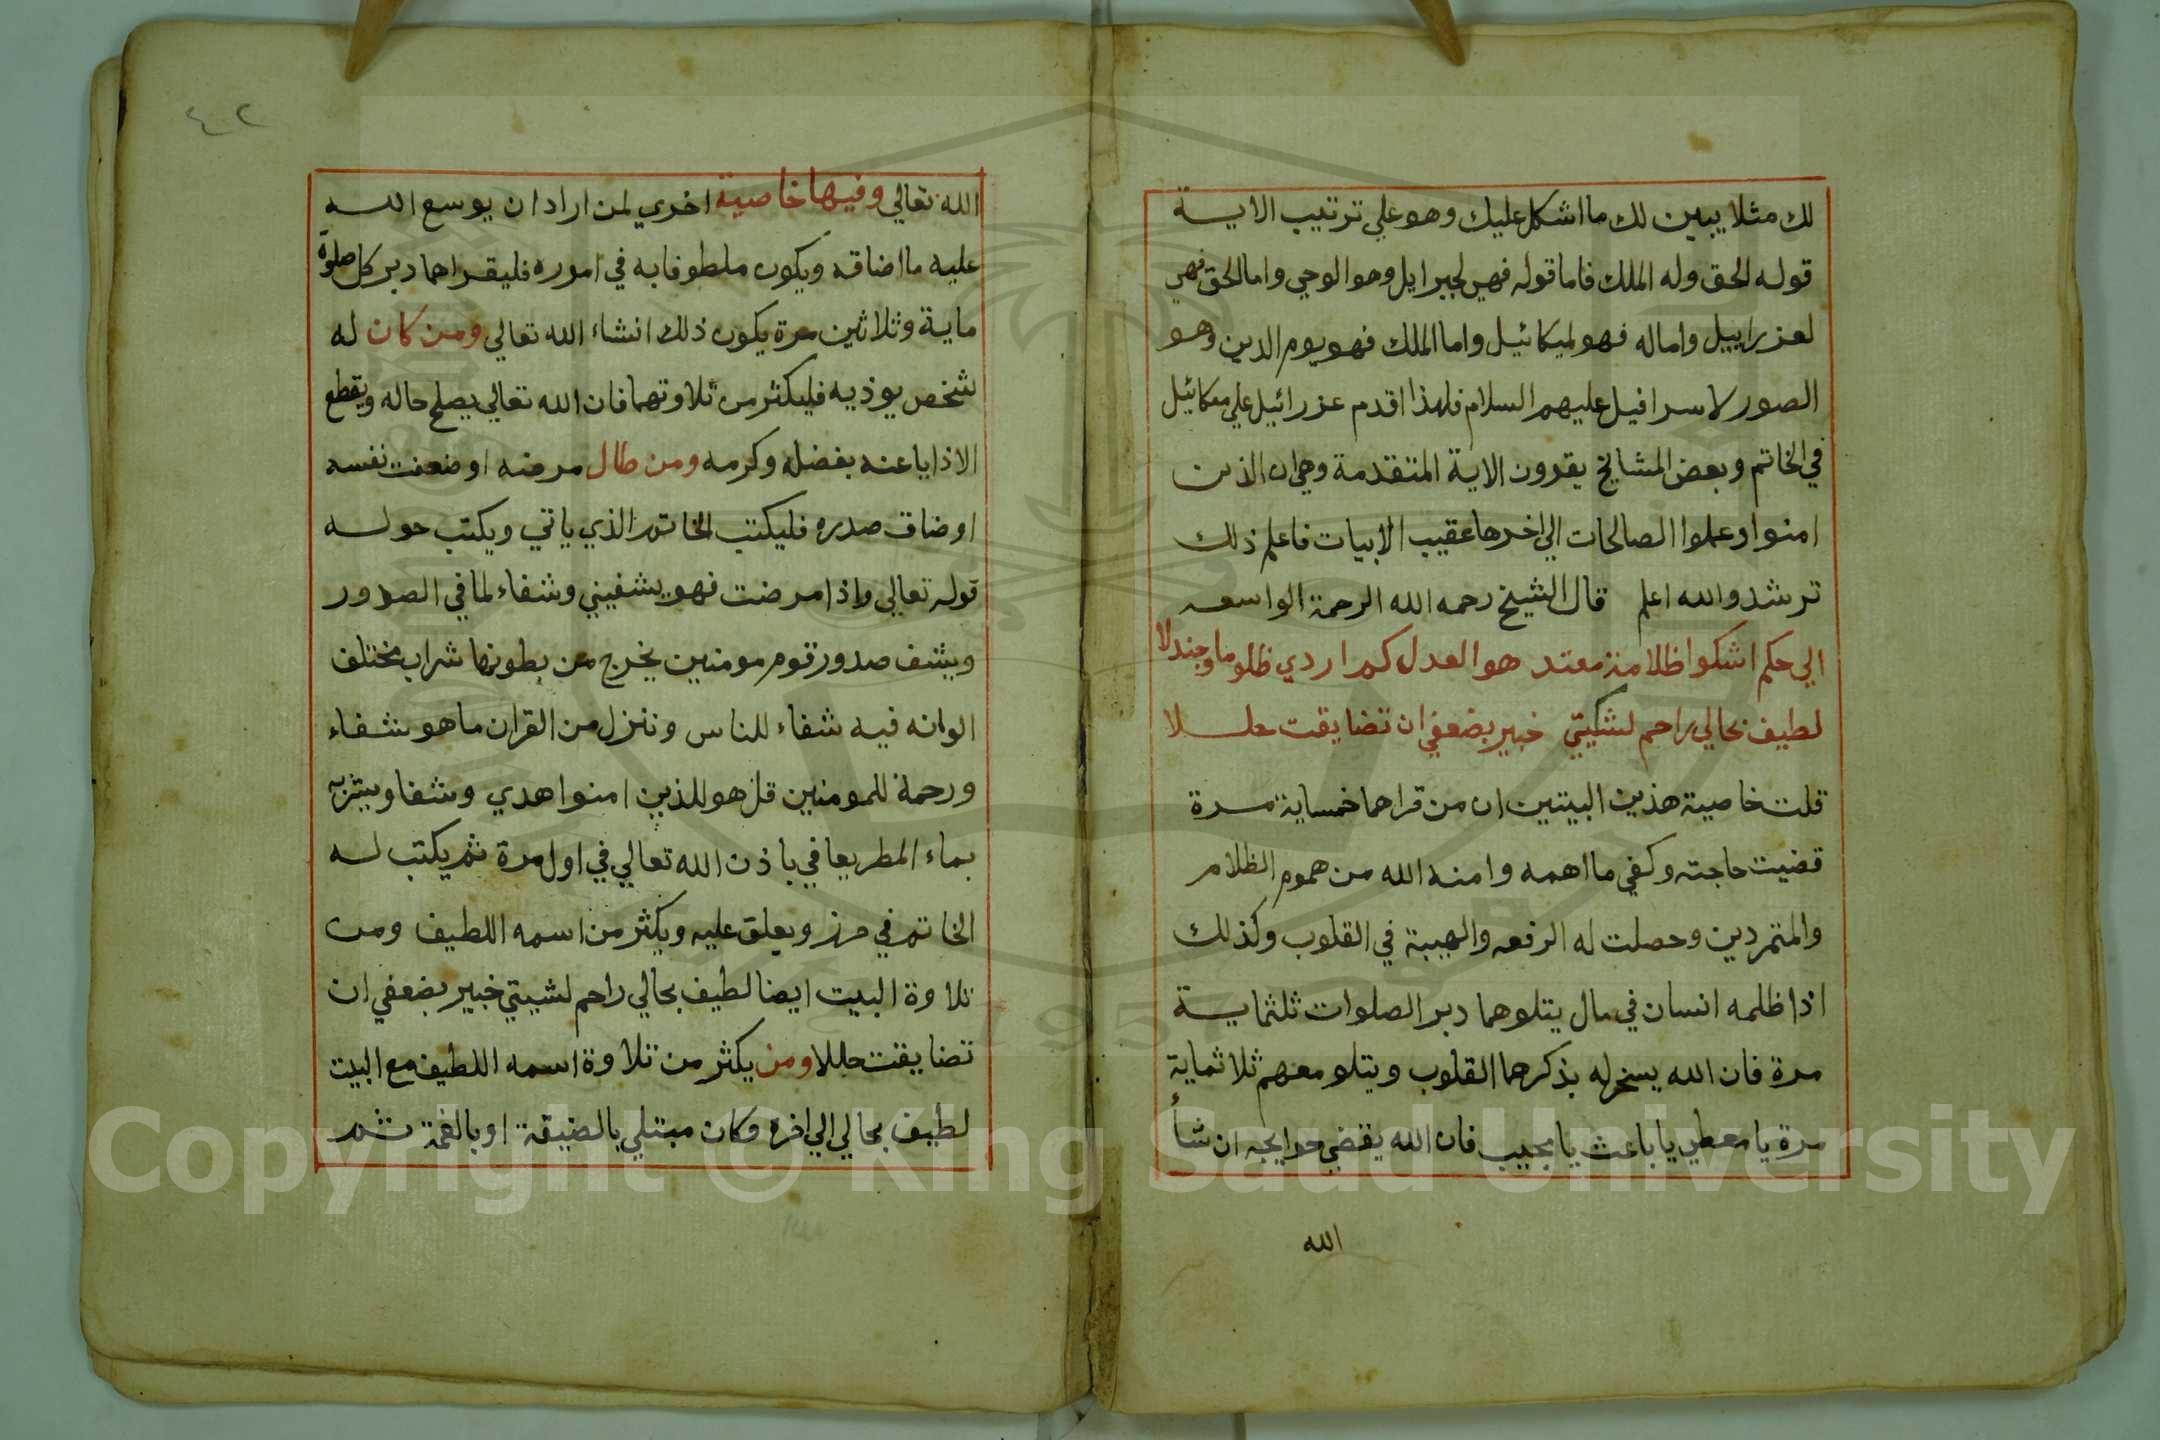 لك مثلا يبين لك ما اشكل عليك وهو علي ترتيب الاية
قوله الحق وله الملك فاما قوله فهي لجبرايل وهو الوحي واما الحق فهي
لعزراييل واما له فهو لميكائيل واما الملك فهو يوم الدين وهو
الصور لاسرافيل عليهم السلام فلهذا اقدم عزرائيل علي ميكائيل
في الخاتم وبعض المشايخ يقرون الاية المتقدمة وهي ان الذين
امنوا وعملوا الصالحات الي اخرها عقيب الابيات فاعلم ذلك
ترشد والله اعلم قال الشيخ رحمه الله الرحمة الواسعه
الي حكم اشكوا ظلامة معتد هو العدل كم اردي ظلوما وجندلا
لطيف بحالي راحم لشكيتي خبير بضعفي ان تضايقت حلـلا
قلت خاصية هذين البيتين ان من قراهما خمساية مرة
قضيت حاجته وكفي ما اهمه وامنه الله من هموم الظلام
والمتمردين وحصلت له الرفعه والهيبة في القلوب وكذلك
اذا ظلمه انسان في مال يتلوهما دبر الصلوات ثلثماية
مرة فان الله يسخر له بذكرهما القلوب ويتلو معهم ثلاثماية
مرة يا معطي يا باعث يا مجيب فان الله يقضي حوايجه ان شأ
الله
٤٢
الله تعالي وفيها خاصية اخري لمن اراد ان يوسع الله
عليه ما اضاقه ويكون ملطوفا به في اموره فليقراهما دبر كل صلوة
ماية وثلاثين مرة يكون ذلك انشاء الله تعالي ومن كان له
شخص يوذيه فليكثر من تلاوتهما فان الله تعالي يصلح حاله ويقطع
الاذايا عنه بفضله وكرمه ومن طال مرضه اوضعفت نفسه
اوضاق صدره فليكتب الخاتم الذي ياتي ويكتب حوله
قوله تعالي واذا مرضت فهو يشفيني وشفاء لما في الصدور
ويشف صدور قوم مومنين يخرج من بطونها شراب مختلف
الوانه فيه شفاء للناس وننزل من القران ما هو شفاء
ورحمة للمومنين قل هو للذين امنوا هدي وشفا ويشربه
بماء المطر يعافي باذن الله تعالي في اول مرة ثم يكتب له
الخاتم في حرز ويعلق عليه ويكثر من اسمه اللطيف ومن
تلاوة البيت ايضا لطيف بحالي راحم لشيبتي خبير بضعفي ان
تضايقت حللا ومن يكثر من تلاوة اسمه اللطيف مع البيت
لطيف بحالي الي اخره وكان مبتلي بالضيقة اوبالغمة ثم
Copyright © King Saud University